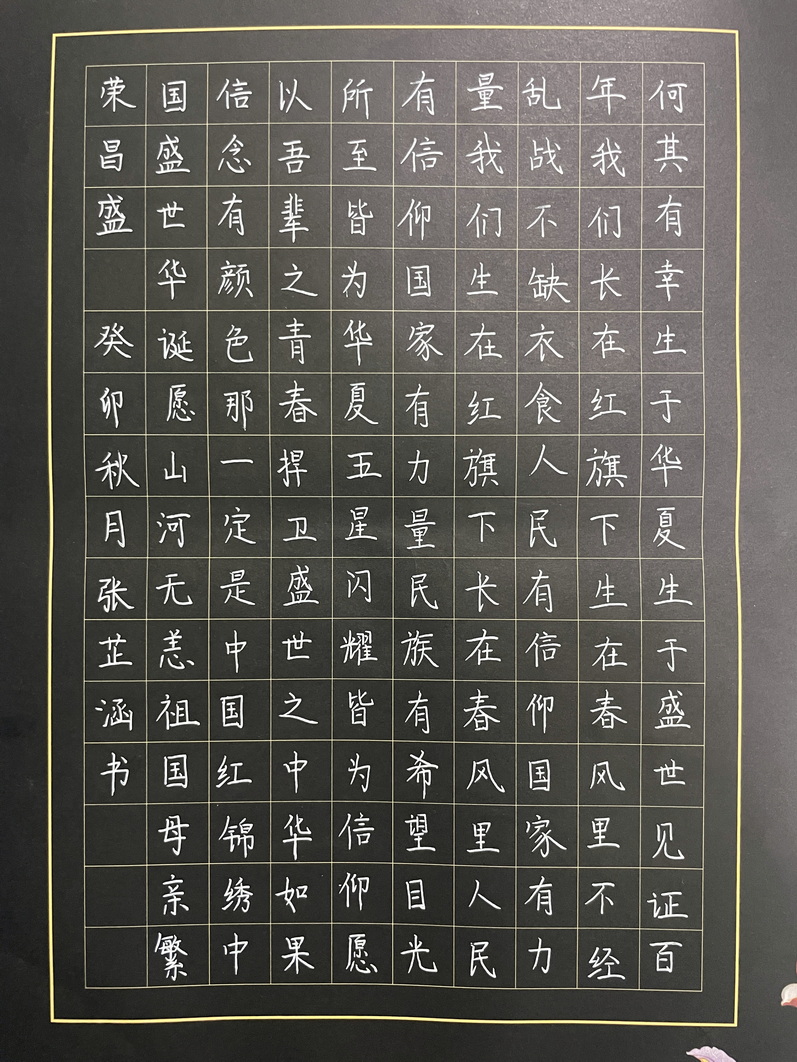 何其有幸生于华夏生于盛世见证百
年我们长在红旗下生在春风里不经
乱战不缺衣食人民有信仰国家有力
量我们生在红旗下长在春风里人民
有信仰国家有力量民族有希望目光
所至皆为华夏五星闪耀皆为信仰愿
以吾辈之青春捍卫盛世之中华如果
信念有颜色那一定是中国红锦绣中
国盛世华诞愿山河无恙祖国母亲繁
荣昌盛 癸卯秋月张芷涵书